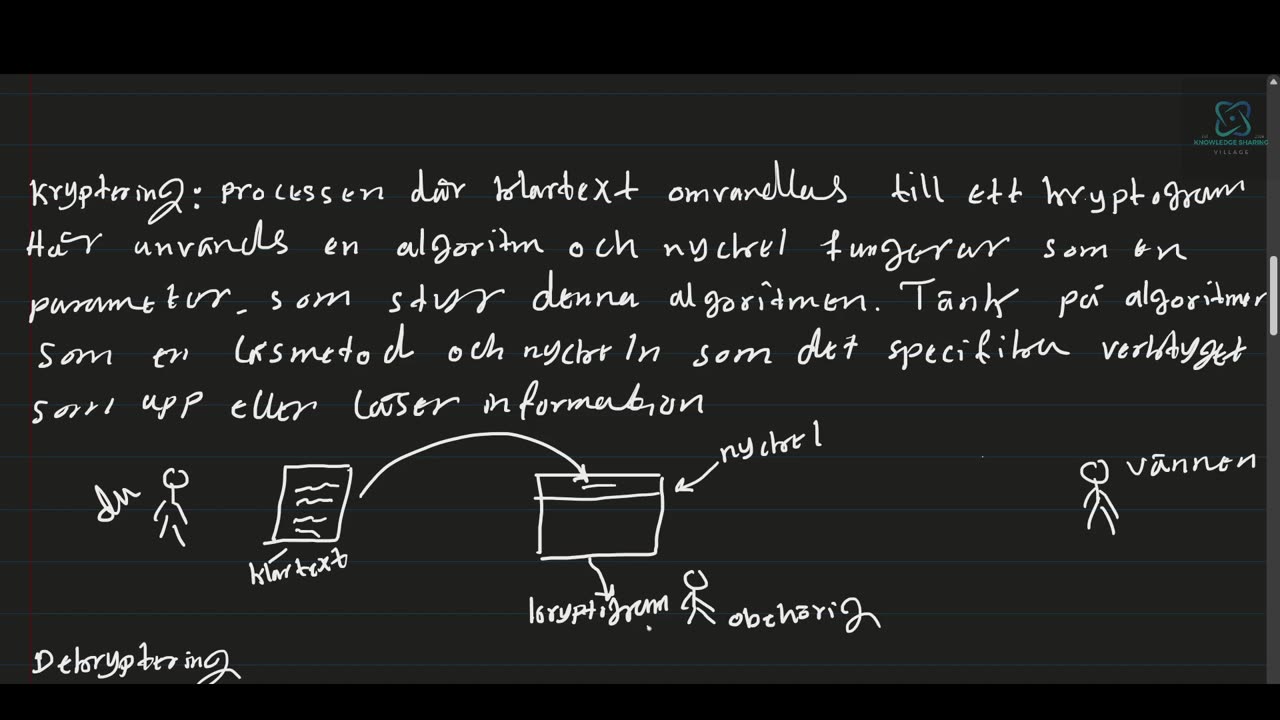 Kryptering: processen där klartext omvandlas till ett kryptogram
Här används en algoritm och nyckel fungerar som en
parameter, som styr denna algoritmen. Tänk på algoritmen
som en låsmetod och nyckeln som det specifika verktyget
som upp eller låser information
nyckel
du
vännen
klartext
kryptigram
obehörig
Dekryptering
KNOWLEDGE SHARING
VILLAGE